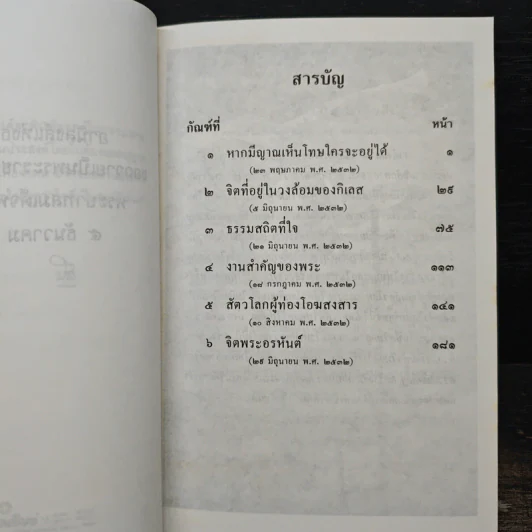 สารบัญ
กัณฑ์ที่ หน้า
๑ หากมีญาณเห็นโทษใครจะอยู่ได้ ๑
(๒๓ พฤษภาคม พ.ศ. ๒๕๓๒)
๒ จิตที่อยู่ในวงล้อมของกิเลส ๒๙
(๕ มิถุนายน พ.ศ. ๒๕๓๒)
๓ ธรรมสถิตที่ใจ ๗๕
(๒๑ มิถุนายน พ.ศ. ๒๕๓๒)
๔ งานสำคัญของพระ ๑๑๓
(๑๘ กรกฎาคม พ.ศ. ๒๕๓๒)
๕ สัตวโลกผู้ท่องโอฆสงสาร ๑๔๑
(๑๐ สิงหาคม พ.ศ. ๒๕๓๒)
๖ จิตพระอรหันต์ ๑๘๑
(๒๙ มิถุนายน พ.ศ. ๒๕๓๒)